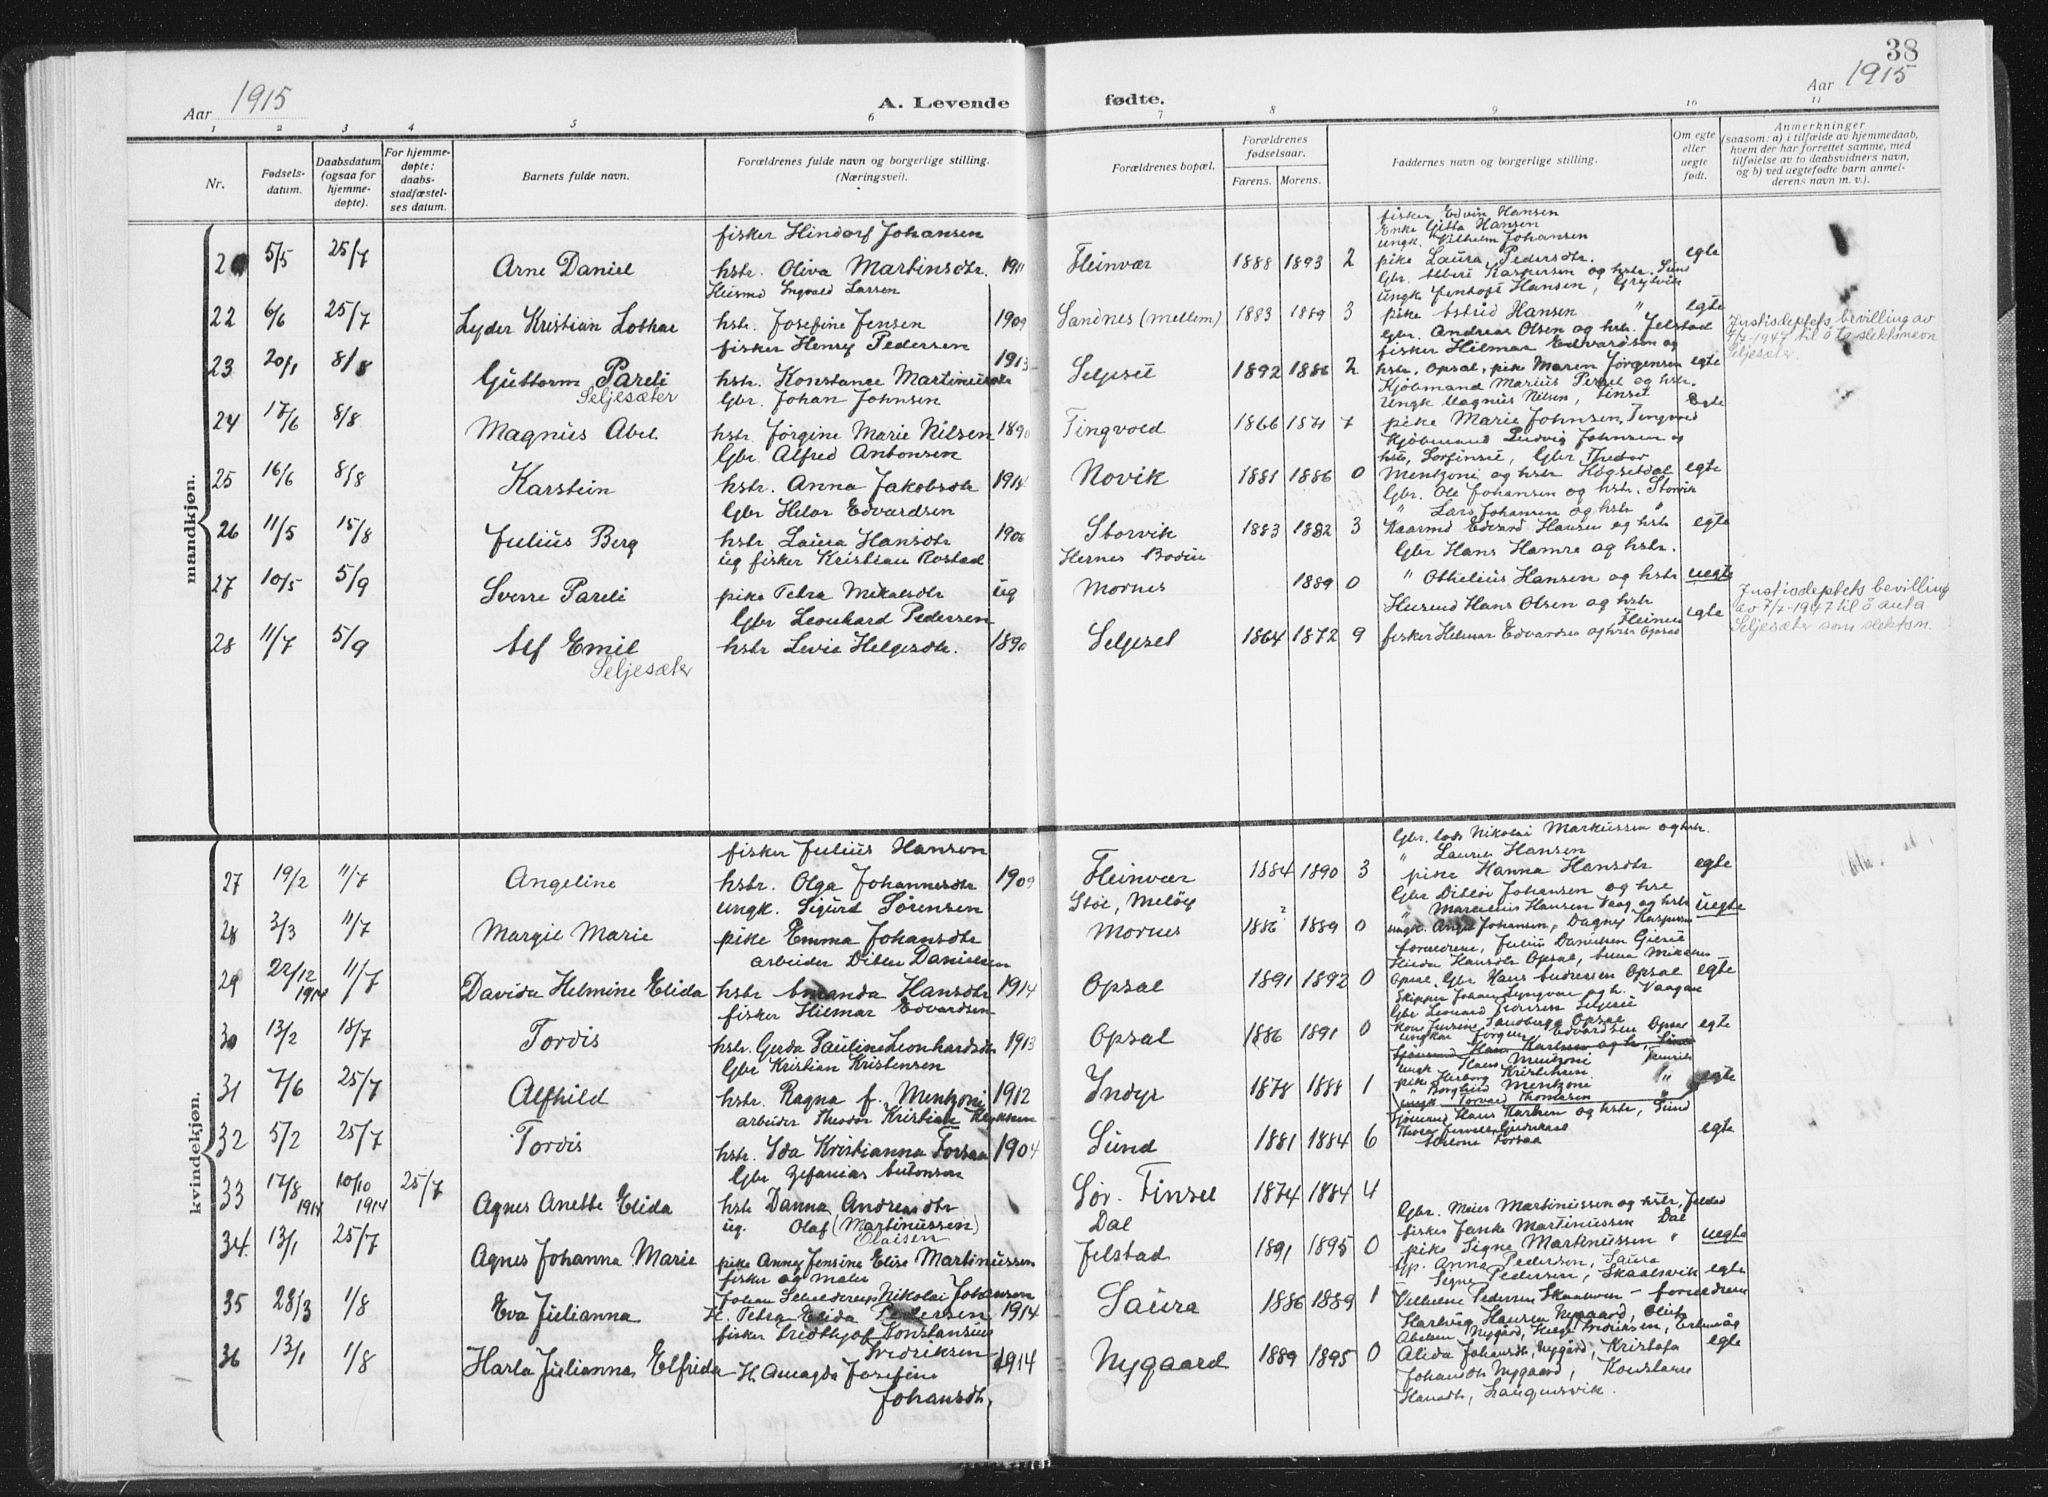 38
Aar 1915
A. Levende fødte.
Aar 1915
1 2 3 4 5 6 7 8 9 10 11
Nr.
Fødsels-
datum.
Daabsdatum
(ogsaa for
hjemme-
døpte).
For hjemme-
døpte:
daabs-
stadfæstel-
ses datum.
Barnets fulde navn.
Forældrenes fulde navn og borgerlige stilling.
(Næringsvei).
Forældrenes bopæl.
Forældrenes
fødselsaar.
Farens. Morens.
Faddernes navn og borgerlige stilling.
Om egte
eller
uegte
født.
Anmerkninger
(saasom: a) i tilfælde av hjemmedaab,
hvem der har forrettet samme, med
tilføielse av to daabsvidners navn,
og b) ved uegtefødte barn anmel-
derens navn m. v.).
mandkjøn.
fisker Hindorf Johansen
fisker Edvin Hansen
Enke Gitta Hansen
ungk. Vilhelm Johansen
2 5/5 25/7 Arne Daniel hstr. Oliva Martinsdtr. 1911 Fleinvær 1888 1893 2 pike Laura Pedersdtr. egte
Husmd Ingvald Larsen
Gbr. Albert Kaspersen og hstr. Sund
ungk Jentoft Hansen, Grytvik
22 6/6 25/7 Lyder Kristian Lothar hstr. Josefine Jensen 1909 Sandnes (mellem) 1883 1889 3 pike Astrid Hansen " egte
fisker Henry Pedersen
Gbr. Andreas Olsen og hstr. Jelstad
fisker Hilmar Edvardsen og
Justisdeptets bevilling av
7/7-1947 til å ta slektsnavn
Seljesæter.
23 20/1 8/8 Guttorm Pareli hstr. Konstance Martinusdtr 1913 Selgset 1892 1886 2 hstr. Opsal, pike Maren Jørgensen egte
Seljesæter Gbr. Johan Johnsen
Kjøbmand Marius Perset og hstr.
Ungk Magnus Nilsen, Finset
24 17/6 8/8 Magnus Abel hstr. Jørgine Marie Nilsen 1890 Tingvold 1866 1871 7 pike Marie Johnsen, Tingvold Egte
Gbr. Alfred Antonsen
Kjøbmand Ludvig Johnsen og
hstr, Sørfinset, Gbr. Thedor
25 16/6 8/8 Karstein hstr. Anna Jakobsdtr 1914 Novik 1881 1886 0 Mentzoni og hstr Høgsetdal egte
Gbr Helar Edvardsen
Gbr. Ole Johansen og hstr. Storvik
" Lars Johansen og hstr "
26 11/5 15/8 Julius Berg hstr Laura Hansdtr 1906 Storvik 1883 1882 3 Kaarmd Edvard Hansen og hstr egte
ug fisker Kristian Rostad Hernes Bodin
Gbr Hans Hamre og hstr.
27 10/5 5/9 Sverre Pareli pike Petra Mikalsdtr ug Mornes 1889 0 " Othelius Hansen og hstr uegte
Gbr Leonhard Pedersen
Husmd Hans Olsen og hstr
Fleines
Justisdeptets bevilling
av 7/7-1947 til å anta
Seljesæter som slektsn.
28 11/7 5/9 Alf Emil hstr Levie Helgesdtr. 1890 Selgset 1864 1872 9 fisker Helmar Edvardsen og hstr Opsal egte
Seljesæter
kvindekjøn.
fisker Julius Hansen
Gbr. lods Nikolai Markussen og hstr.
" Laurie Hansen
27 19/2 11/7 Angeline hstr. Olga Johannesdtr 1909 Fleinvær 1884 1890 3 pike Hanna Hansdtr egte
ungk. Sigurd Sørensen Støt, Meløy
Gbr Ditløv Johansen og hstr
" Marcelius Hansen Vaag og hstr
28 3/3 11/7 Margit Marie pike Emma Johansdtr Mornes 1886 1889 0 ungk. Angel Johansen, Dagny Kaspersen uegte
arbeider Ditlev Danielsen
forældrene, Julius Danielsen Gjerset
Hilda Hansdtr Opsal, Anna Mikalsen
29 22/12 1914 11/7 Davida Helmine Elida hstr Amanda Hansdtr 1914 Opsal 1891 1892 0 Opsal. Gbr Hans Andreassen Opsal egte
fisker Hilmar Edvardsen
Skipper Johan Lyngvær og h. Vaagan
Gbr Leonard Pedersen Selgset
30 13/2 18/7 Tordis hstr. Gerda Pauline Leonhardsdtr 1913 Opsal 1886 1891 0 Kone Jensine Sandberg Opsal egte
Gbr Kristian Kristensen
ungkar Jørgen Edvardsen Opsal
Sjømand Hans Karlsen og h, Sund
ungk Hans Mentzoni
31 7/6 25/7 Alfhild hstr. Ragna f. Mentzoni 1912 Indyr 1878 1888 1 pike Herborg Kristensen " egte
Borghild Mentzoni
ungk Torvald Thomassen
arbeider Theodor Kristian
Sjømand Hans Karlsen og hstr, Sund
32 5/2 25/7 Tordis hstr. Ida Kristianna Forsaa 1904 Sund 1881 1884 6 egte
Gbr Zefanias Antonsen
33 17/8 1914 10/10 1914 25/7 Agnes Anette Elida hstr Danna Andreasdtr Sør. Finset 1874 1884 4
ug. Olaf (Martinussen) Dal
Olaisen
Gbr. Meier Martinussen og hstr, Jelstad
fisker Janke Martinussen Dal
34. 13/1 25/7 Agnes Johanna Marie pike Anna Jensine Elise Martinussen Jelstad 1891 1895 0 pike Signe Martinussen " uegte
fisker og maler
Gp. Anna Pedersen, Saura
Signe Pedersen, Skaalsvik
Nikolai Johansen
35 28/3 1/8 Eva Julianna H. Petra Elida Pedersen 1914 Saura 1886 1889 1 Vilhelm Pedersen Skaalsvik – forældrene egte
fisker Fridthjof Konstansius
Fredriksen
Hartvig Hansen Nygaard, Oluf
Abelsen Nygård, Helge Fredriksen,
36 13/1 1/8 Harla Julianna Elfrida H. Amagda Josefine 1914 Nygaard 1889 1895 0 Alida Johansdtr, Nygård, Kristofa egte
Johansdtr.
Johansdtr Nygaard, Konstanse
Hansdtr, Langensvik.